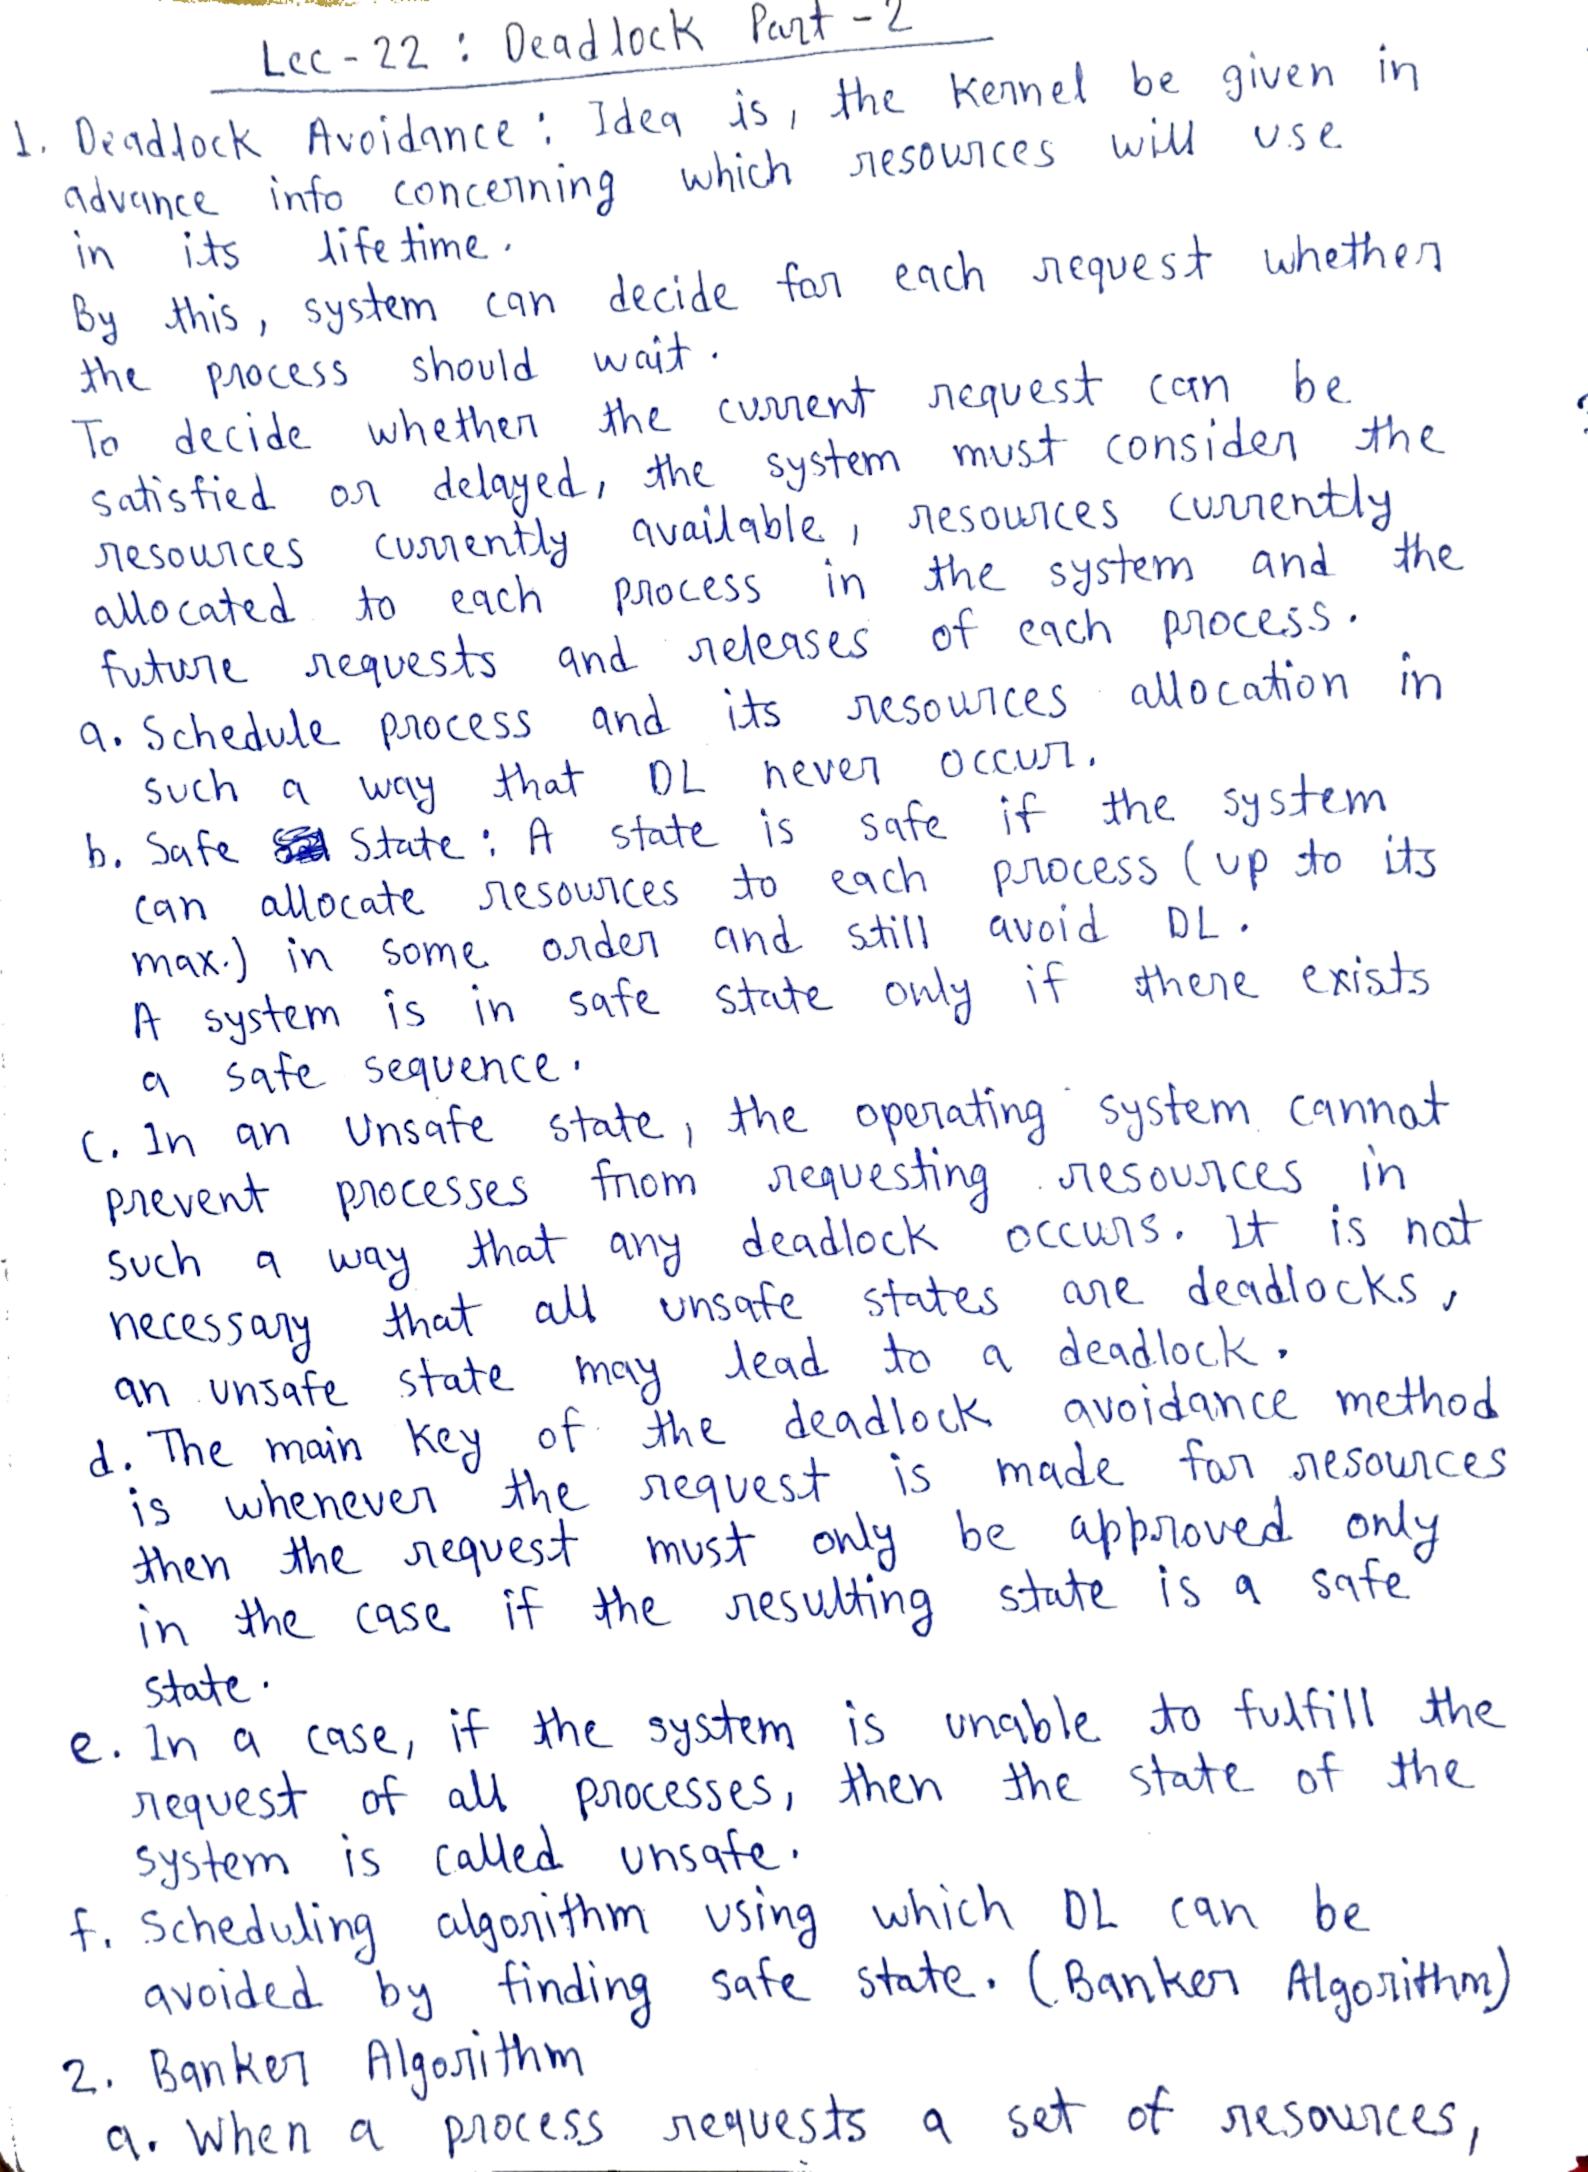 Lec-22 : Deadlock Part-2
1. Deadlock Avoidance : Idea is, the kernel be given in
advance info concerning which resources will use
in its lifetime.
By this, system can decide for each request whether
the process should wait.
To decide whether the current request can be
satisfied or delayed, the system must consider the
resources currently available, resources currently
allocated to each process in the system and the
future requests and releases of each process.
a. Schedule process and its resources allocation in
such a way that DL never occur.
b. Safe State : A state is safe if the system
can allocate resources to each process (up to its
max.) in some order and still avoid DL.
A system is in safe state only if there exists
a safe sequence.
c. In an Unsafe state, the operating system cannot
prevent processes from requesting resources in
such a way that any deadlock occurs. It is not
necessary that all unsafe states are deadlocks,
an unsafe state may lead to a deadlock.
d. The main key of the deadlock avoidance method
is whenever the request is made for resources
then the request must only be approved only
in the case if the resulting state is a safe
state.
e. In a case, if the system is unable to fulfill the
request of all processes, then the state of the
system is called unsafe.
f. Scheduling algorithm using which DL can be
avoided by finding safe state. (Banker Algorithm)
2. Banker Algorithm
a. When a process requests a set of resources,